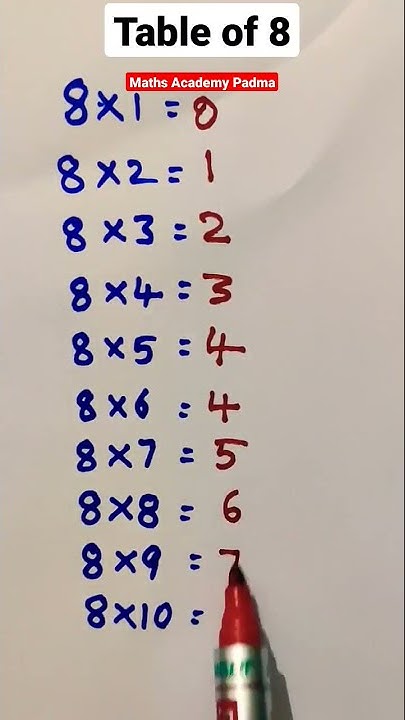 Table of 8
Maths Academy Padma
8×1=0
8×2=1
8×3=2
8×4=3
8×5=4
8×6=4
8×7=5
8×8=6
8×9=7
8×10=